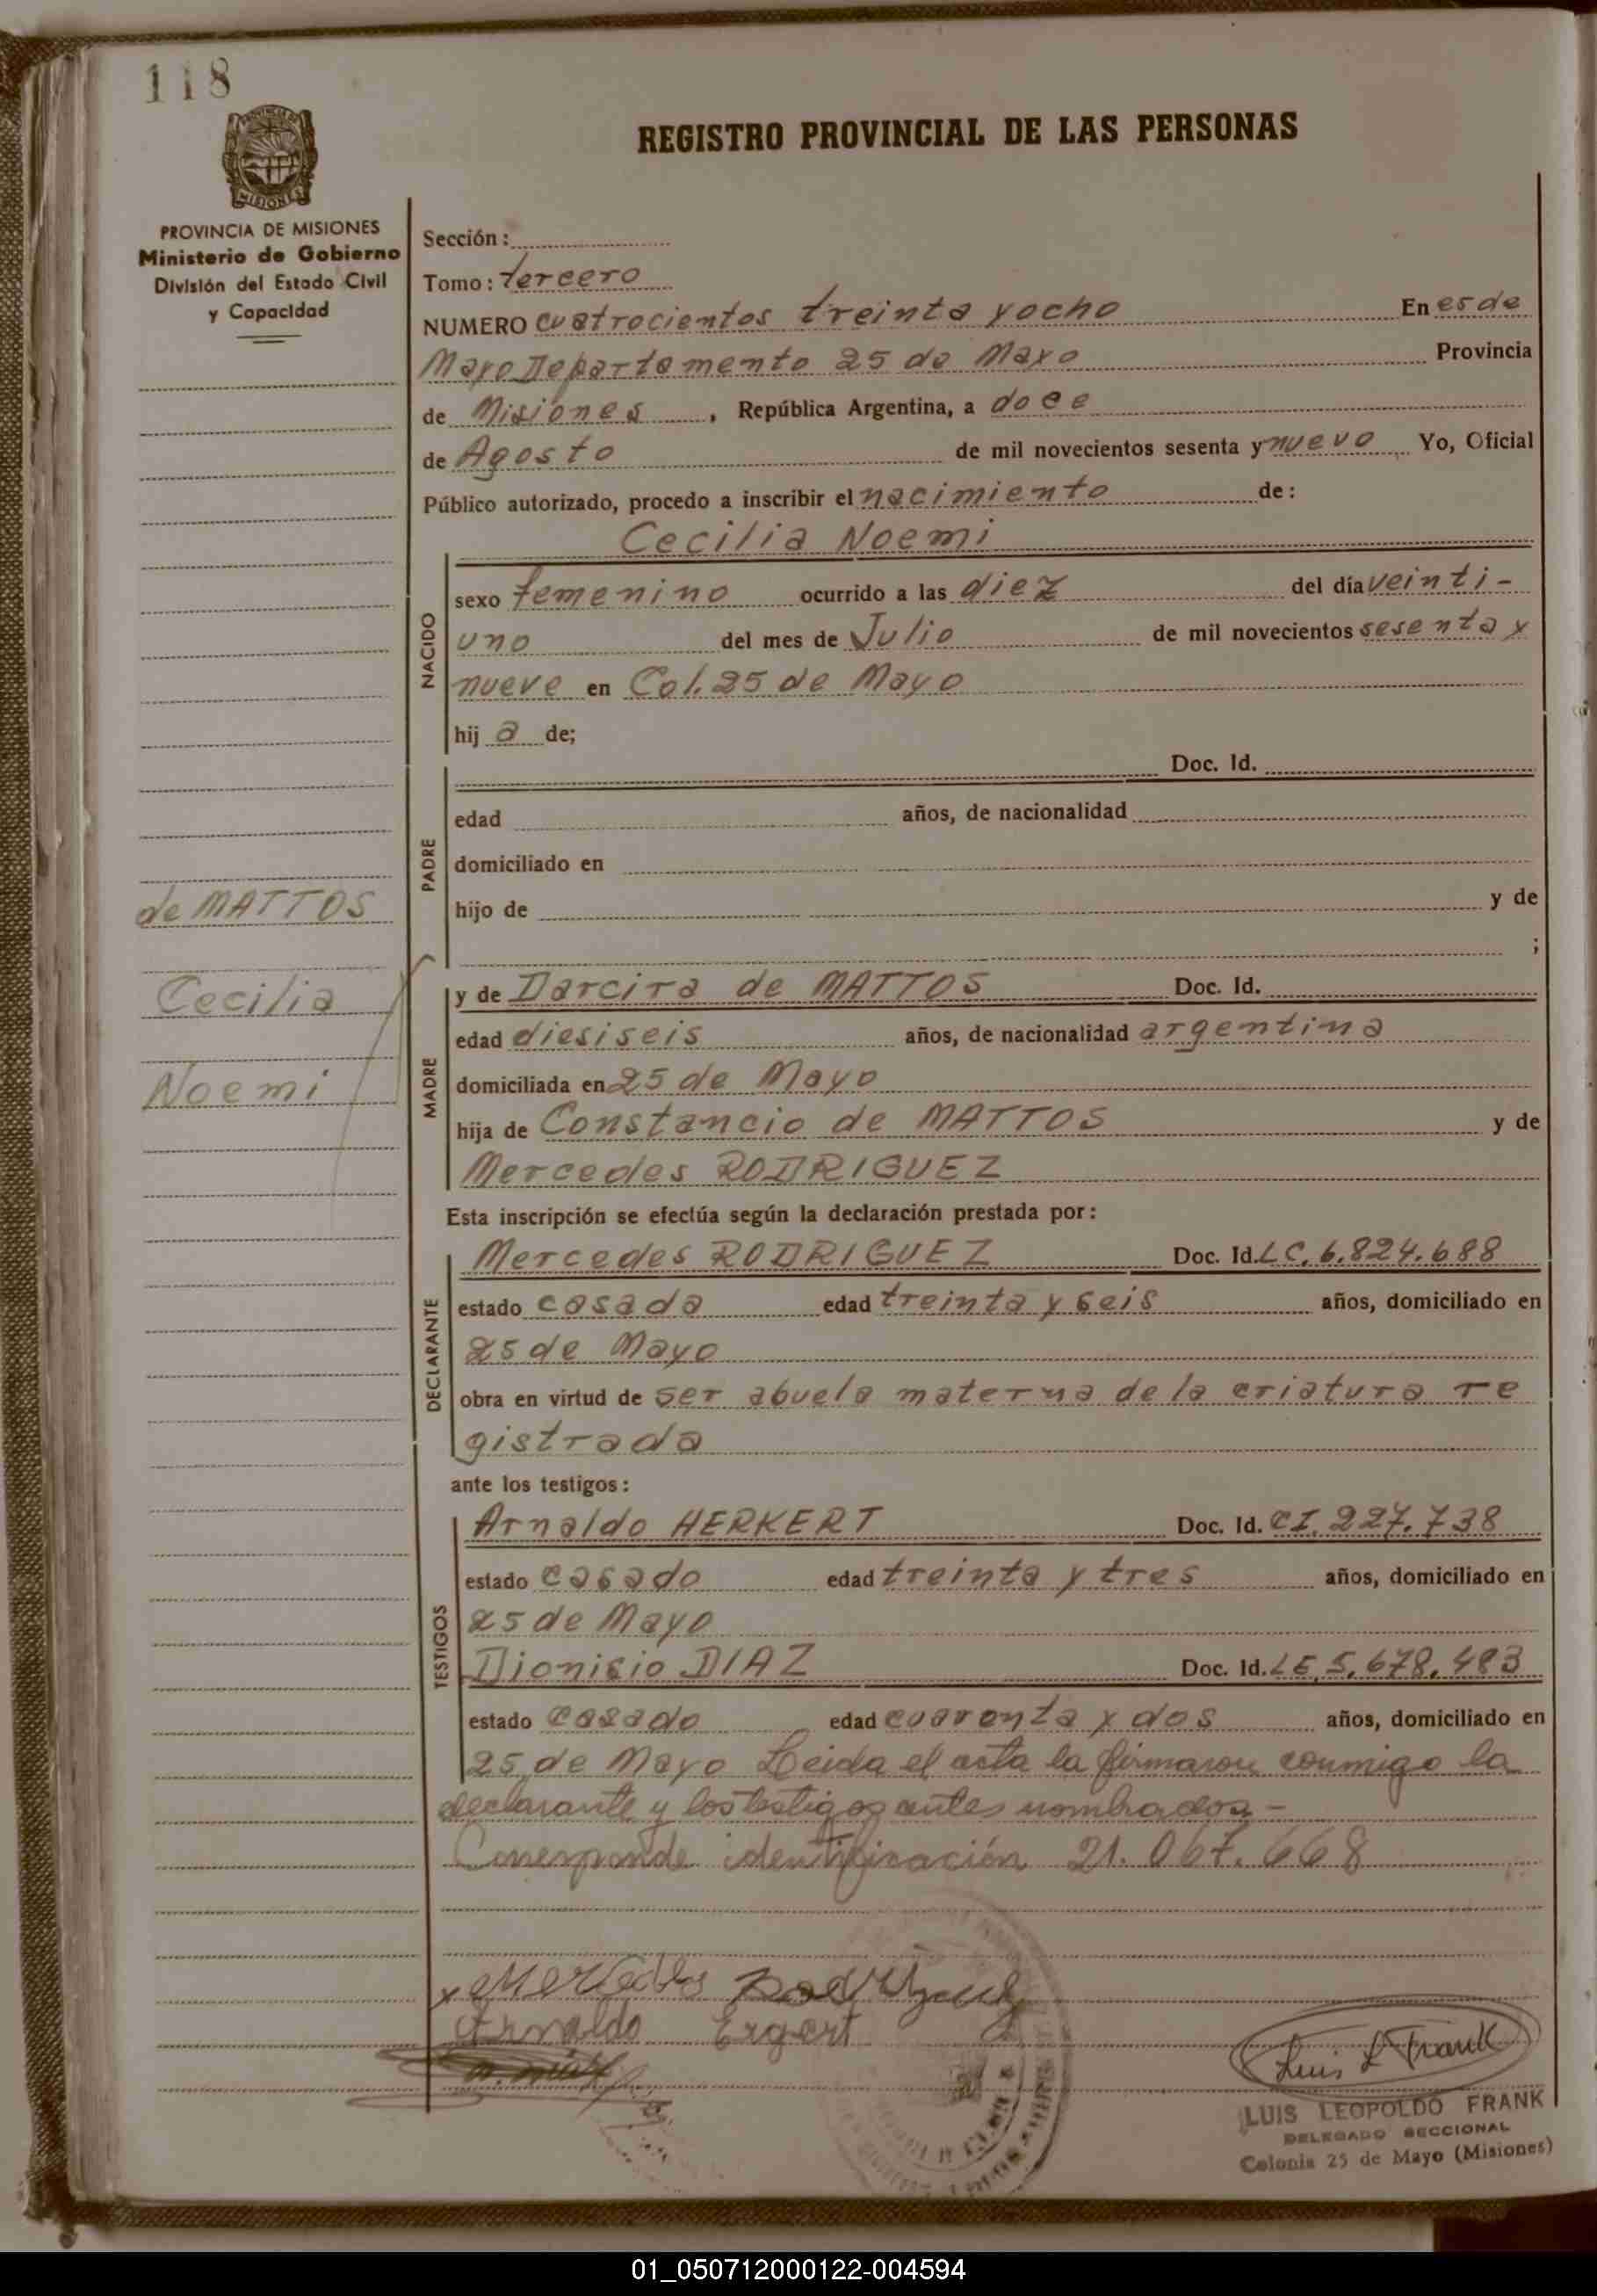 118
PROVINCIA DE MISIONES
Ministerio de Gobierno
División del Estado Civil
y Capacidad
REGISTRO PROVINCIAL DE LAS PERSONAS
Sección:
Tomo: tercero
NUMERO cuatrocientos treinta y ocho En es de
Mayo Departamento 25 de Mayo Provincia
de Misiones, República Argentina, a doce
de Agosto de mil novecientos sesenta y nuevo Yo, Oficial
Público autorizado, procedo a inscribir el nacimiento de:
Cecilia Noemi
NACIDO
sexo femenino ocurrido a las diez del día veinti-
uno del mes de Julio de mil novecientos sesenta y
nueve en Col. 25 de Mayo
hij a de;
PADRE
Doc. Id.
edad años, de nacionalidad
domiciliado en
hijo de y de
;
de MATTOS
Cecilia
Noemi
MADRE
y de Darcira de MATTOS Doc. Id.
edad diesiseis años, de nacionalidad argentina
domiciliada en 25 de Mayo
hija de Constancio de MATTOS y de
Mercedes RODRIGUEZ
Esta inscripción se efectúa según la declaración prestada por:
DECLARANTE
Mercedes RODRIGUEZ Doc. Id. LC. 6.824.688
estado casada edad treinta y seis años, domiciliado en
25 de Mayo
obra en virtud de ser abuela materna de la criatura re
gistrada
ante los testigos:
TESTIGOS
Arnaldo HERKERT Doc. Id. CI. 227.738
estado casado edad treinta y tres años, domiciliado en
25 de Mayo
Dionisio DIAZ Doc. Id. LE, 5.678.483
estado casado edad cuarenta y dos años, domiciliado en
25 de Mayo Leida el acta la firmaron conmigo la
declarante y los testigos antes nombrados-
Corresponde identificación 21.067.668
x Mercedes Rodriguez
Arnaldo Ergert
Luis L Frank
LUIS LEOPOLDO FRANK
DELEGADO SECCIONAL
Colonia 25 de Mayo (Misiones)
01_050712000122-004594